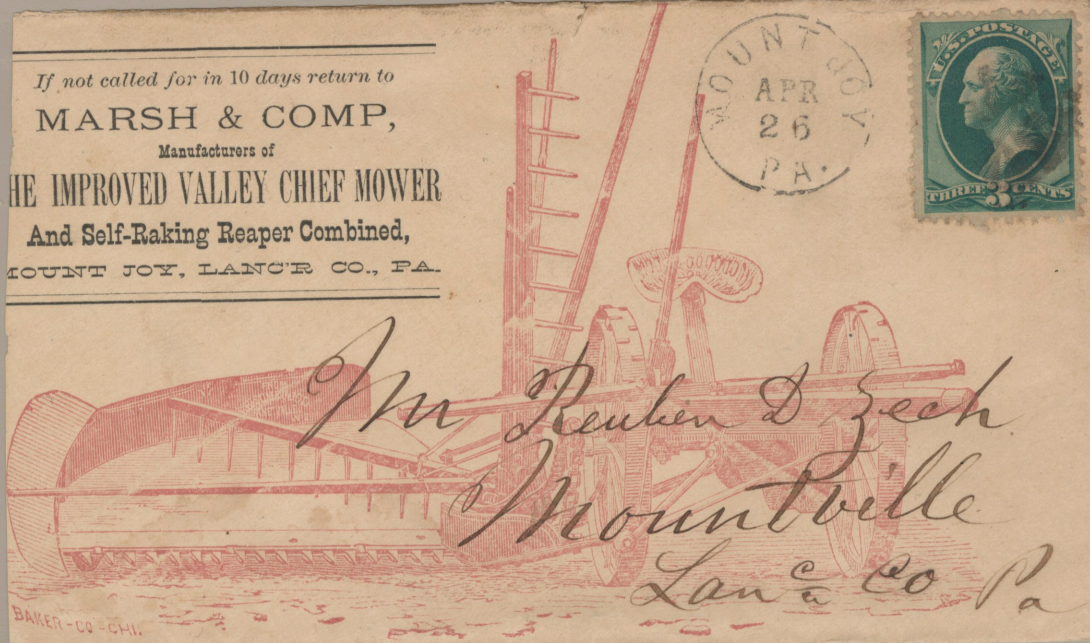 If not called for in 10 days return to
MARSH & COMP,
Manufacturers of
HE IMPROVED VALLEY CHIEF MOWER
And Self-Raking Reaper Combined,
MOUNT JOY, LANC'R CO., PA.
MOUNT JOY
APR
26
PA.
U.S. POSTAGE
THREE 3 CENTS
Mr Reuben D Zech
Mountville
Lanc Co Pa
BAKER-CO-CHI.